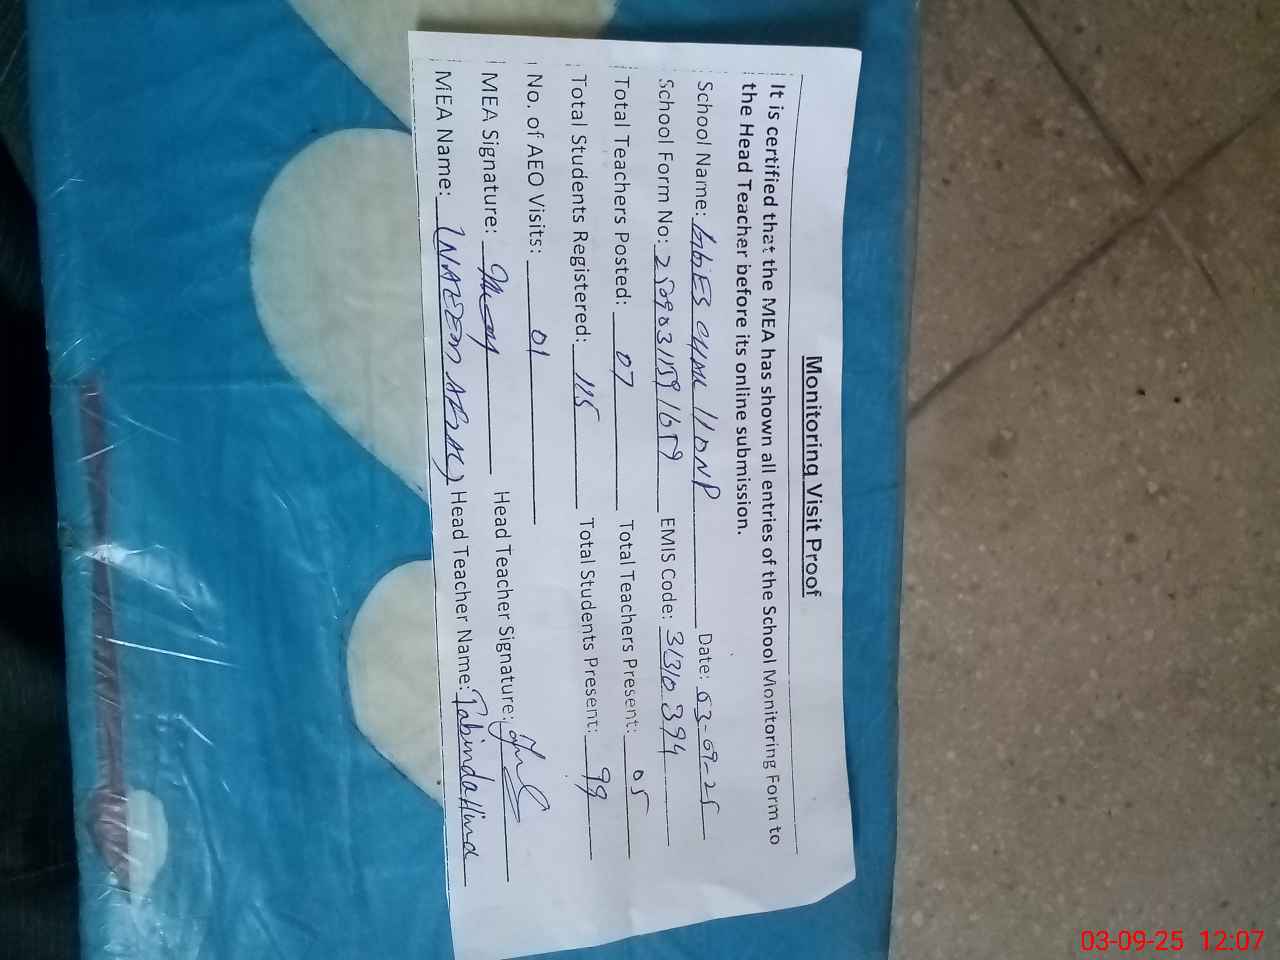 Monitoring Visit Proof
It is certified that the MEA has shown all entries of the School Monitoring Form to
the Head Teacher before its online submission.
School Name: GGES CHAK 11DNP Date: 03-09-25
School Form No: EMIS Code: 31310394
Total Teachers Posted: 07 Total Teachers Present: 05
Total Students Registered: 115 Total Students Present: 99
No. of AEO Visits: 01
MEA Signature: Head Teacher Signature:
MEA Name: Head Teacher Name: Tabinda Hina
03-09-25 12:07